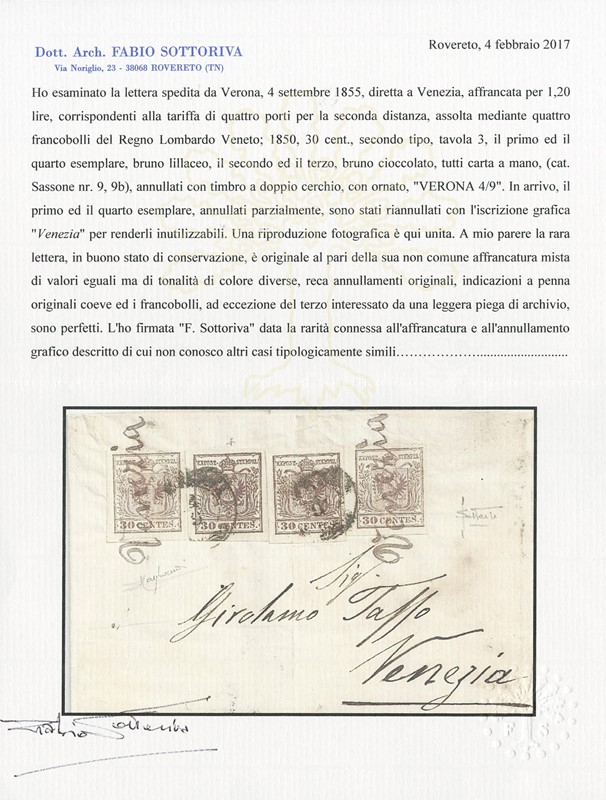 Dott. Arch. FABIO SOTTORIVA
Via Noriglio, 23 - 38068 ROVERETO (TN)
Rovereto, 4 febbraio 2017
Ho esaminato la lettera spedita da Verona, 4 settembre 1855, diretta a Venezia, affrancata per 1,20
lire, corrispondenti alla tariffa di quattro porti per la seconda distanza, assolta mediante quattro
francobolli del Regno Lombardo Veneto; 1850, 30 cent., secondo tipo, tavola 3, il primo ed il
quarto esemplare, bruno lillaceo, il secondo ed il terzo, bruno cioccolato, tutti carta a mano, (cat.
Sassone nr. 9, 9b), annullati con timbro a doppio cerchio, con ornato, "VERONA 4/9". In arrivo, il
primo ed il quarto esemplare, annullati parzialmente, sono stati riannullati con l'iscrizione grafica
"Venezia" per renderli inutilizzabili. Una riproduzione fotografica è qui unita. A mio parere la rara
lettera, in buono stato di conservazione, è originale al pari della sua non comune affrancatura mista
di valori eguali ma di tonalità di colore diverse, reca annullamenti originali, indicazioni a penna
originali coeve ed i francobolli, ad eccezione del terzo interessato da una leggera piega di archivio,
sono perfetti. L'ho firmata "F. Sottoriva" data la rarità connessa all'affrancatura e all'annullamento
grafico descritto di cui non conosco altri casi tipologicamente simili……………….............................
Venezia Venezia
KKPOST-STEMPEL KKPOST-STEMPEL KKPOST-STEMPEL KKPOST-STEMPEL
30 CENTES. 30 CENTES. 30 CENTES. 30 CENTES.
Sig.
Girolamo Tasso
Venezia
Fabio Sottoriva